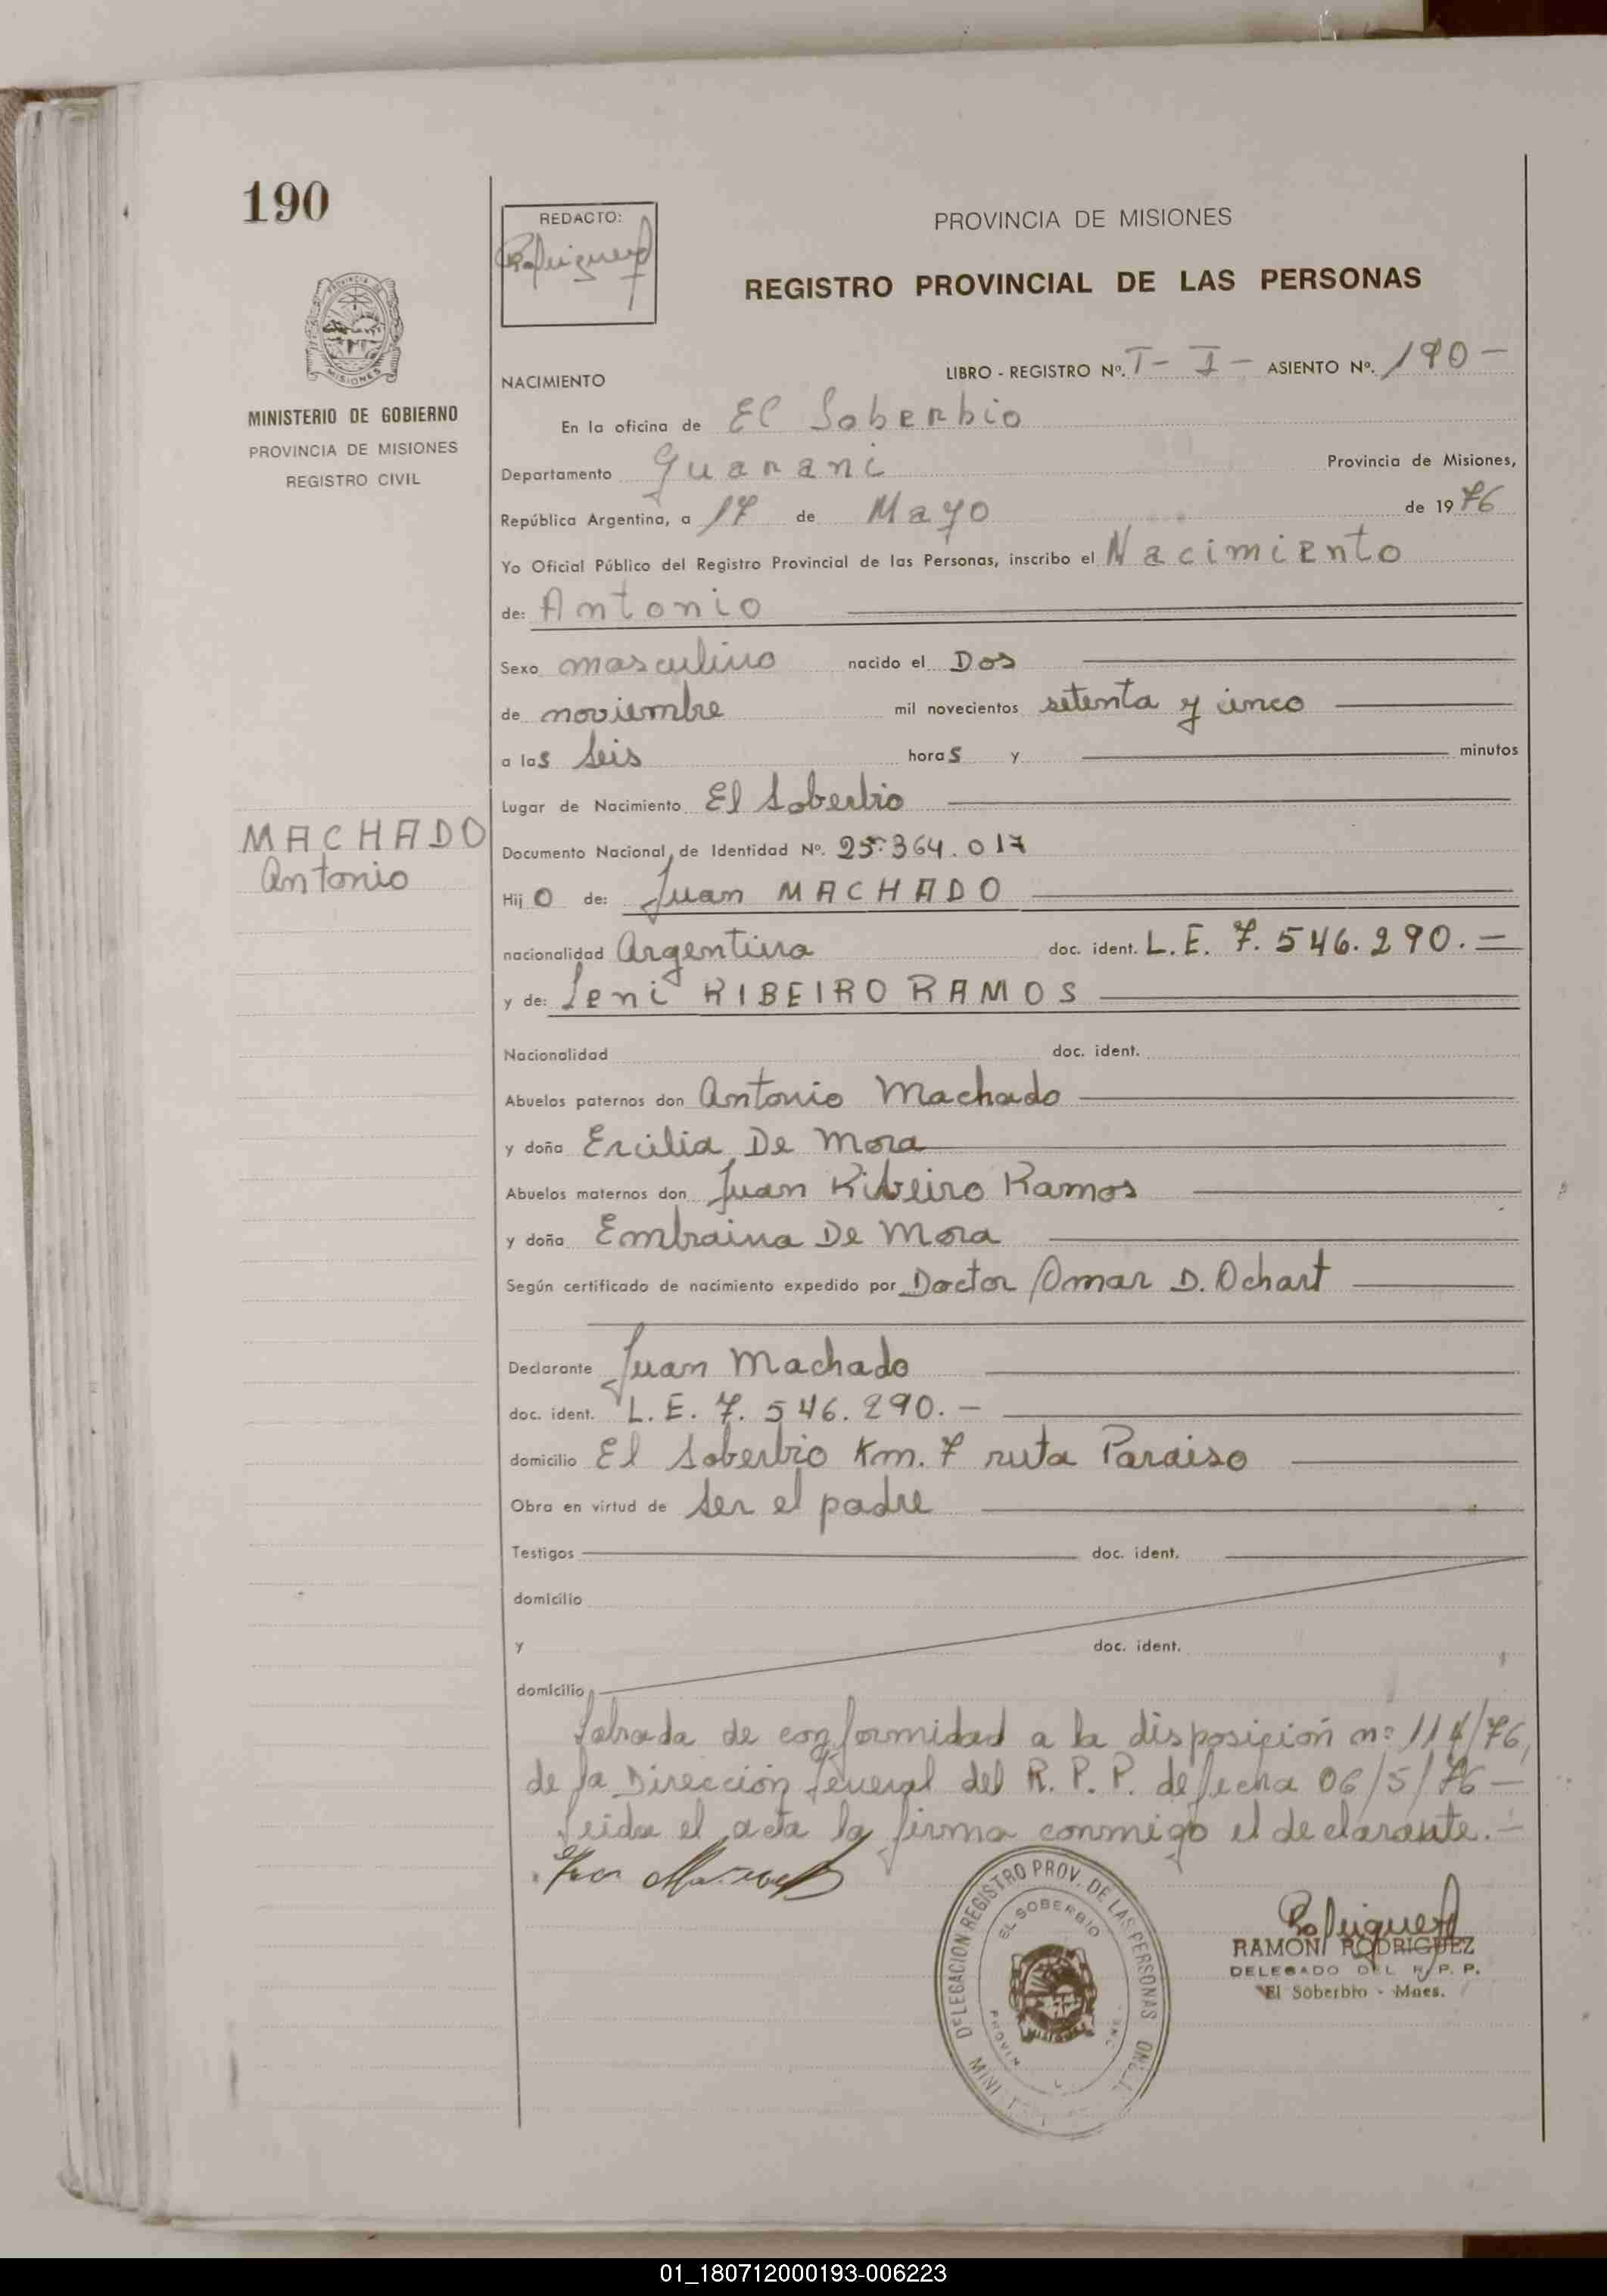 190
REDACTO:
Rodriguez
PROVINCIA DE MISIONES
REGISTRO PROVINCIAL DE LAS PERSONAS
PROVINCIA DE MISIONES
MINISTERIO DE GOBIERNO
PROVINCIA DE MISIONES
REGISTRO CIVIL
NACIMIENTO
LIBRO - REGISTRO Nº. T - I - ASIENTO Nº. 190 -
En la oficina de El Soberbio
Departamento Guarani Provincia de Misiones,
República Argentina, a 17 de Mayo de 1976
Yo Oficial Público del Registro Provincial de las Personas, inscribo el Nacimiento
de: Antonio
Sexo masculino nacido el Dos
de noviembre mil novecientos setenta y cinco
a las Seis horas y minutos
Lugar de Nacimiento El Soberbio
MACHADO
Antonio
Documento Nacional de Identidad Nº. 25.364.017
Hijo de: Juan MACHADO
nacionalidad Argentina doc. ident. L.E. 7.546.290.-
y de: Leni RIBEIRO RAMOS
Nacionalidad doc. ident.
Abuelos paternos don Antonio Machado
y doña Ercilia De Mora
Abuelos maternos don Juan Ribeiro Ramos
y doña Embraina De Mora
Según certificado de nacimiento expedido por Doctor Omar D. Ochart
Declarante Juan Machado
doc. ident. L.E. 7.546.290.-
domicilio El Soberbio Km. 7 ruta Paraiso
Obra en virtud de ser el padre
Testigos doc. ident.
domicilio
y doc. ident.
domicilio
labrada de conformidad a la disposición nº 114/76,
de la Dirección General del R.P.P. de fecha 06/5/76 -
leida el acta la firma conmigo el declarante.-
DELEGACION REGISTRO PROV. DE LAS PERSONAS
EL SOBERBIO
MISIONES
Rodriguez
RAMON RODRIGUEZ
DELEGADO DEL R.P.P.
El Soberbio - Mnes.
01_180712000193-006223